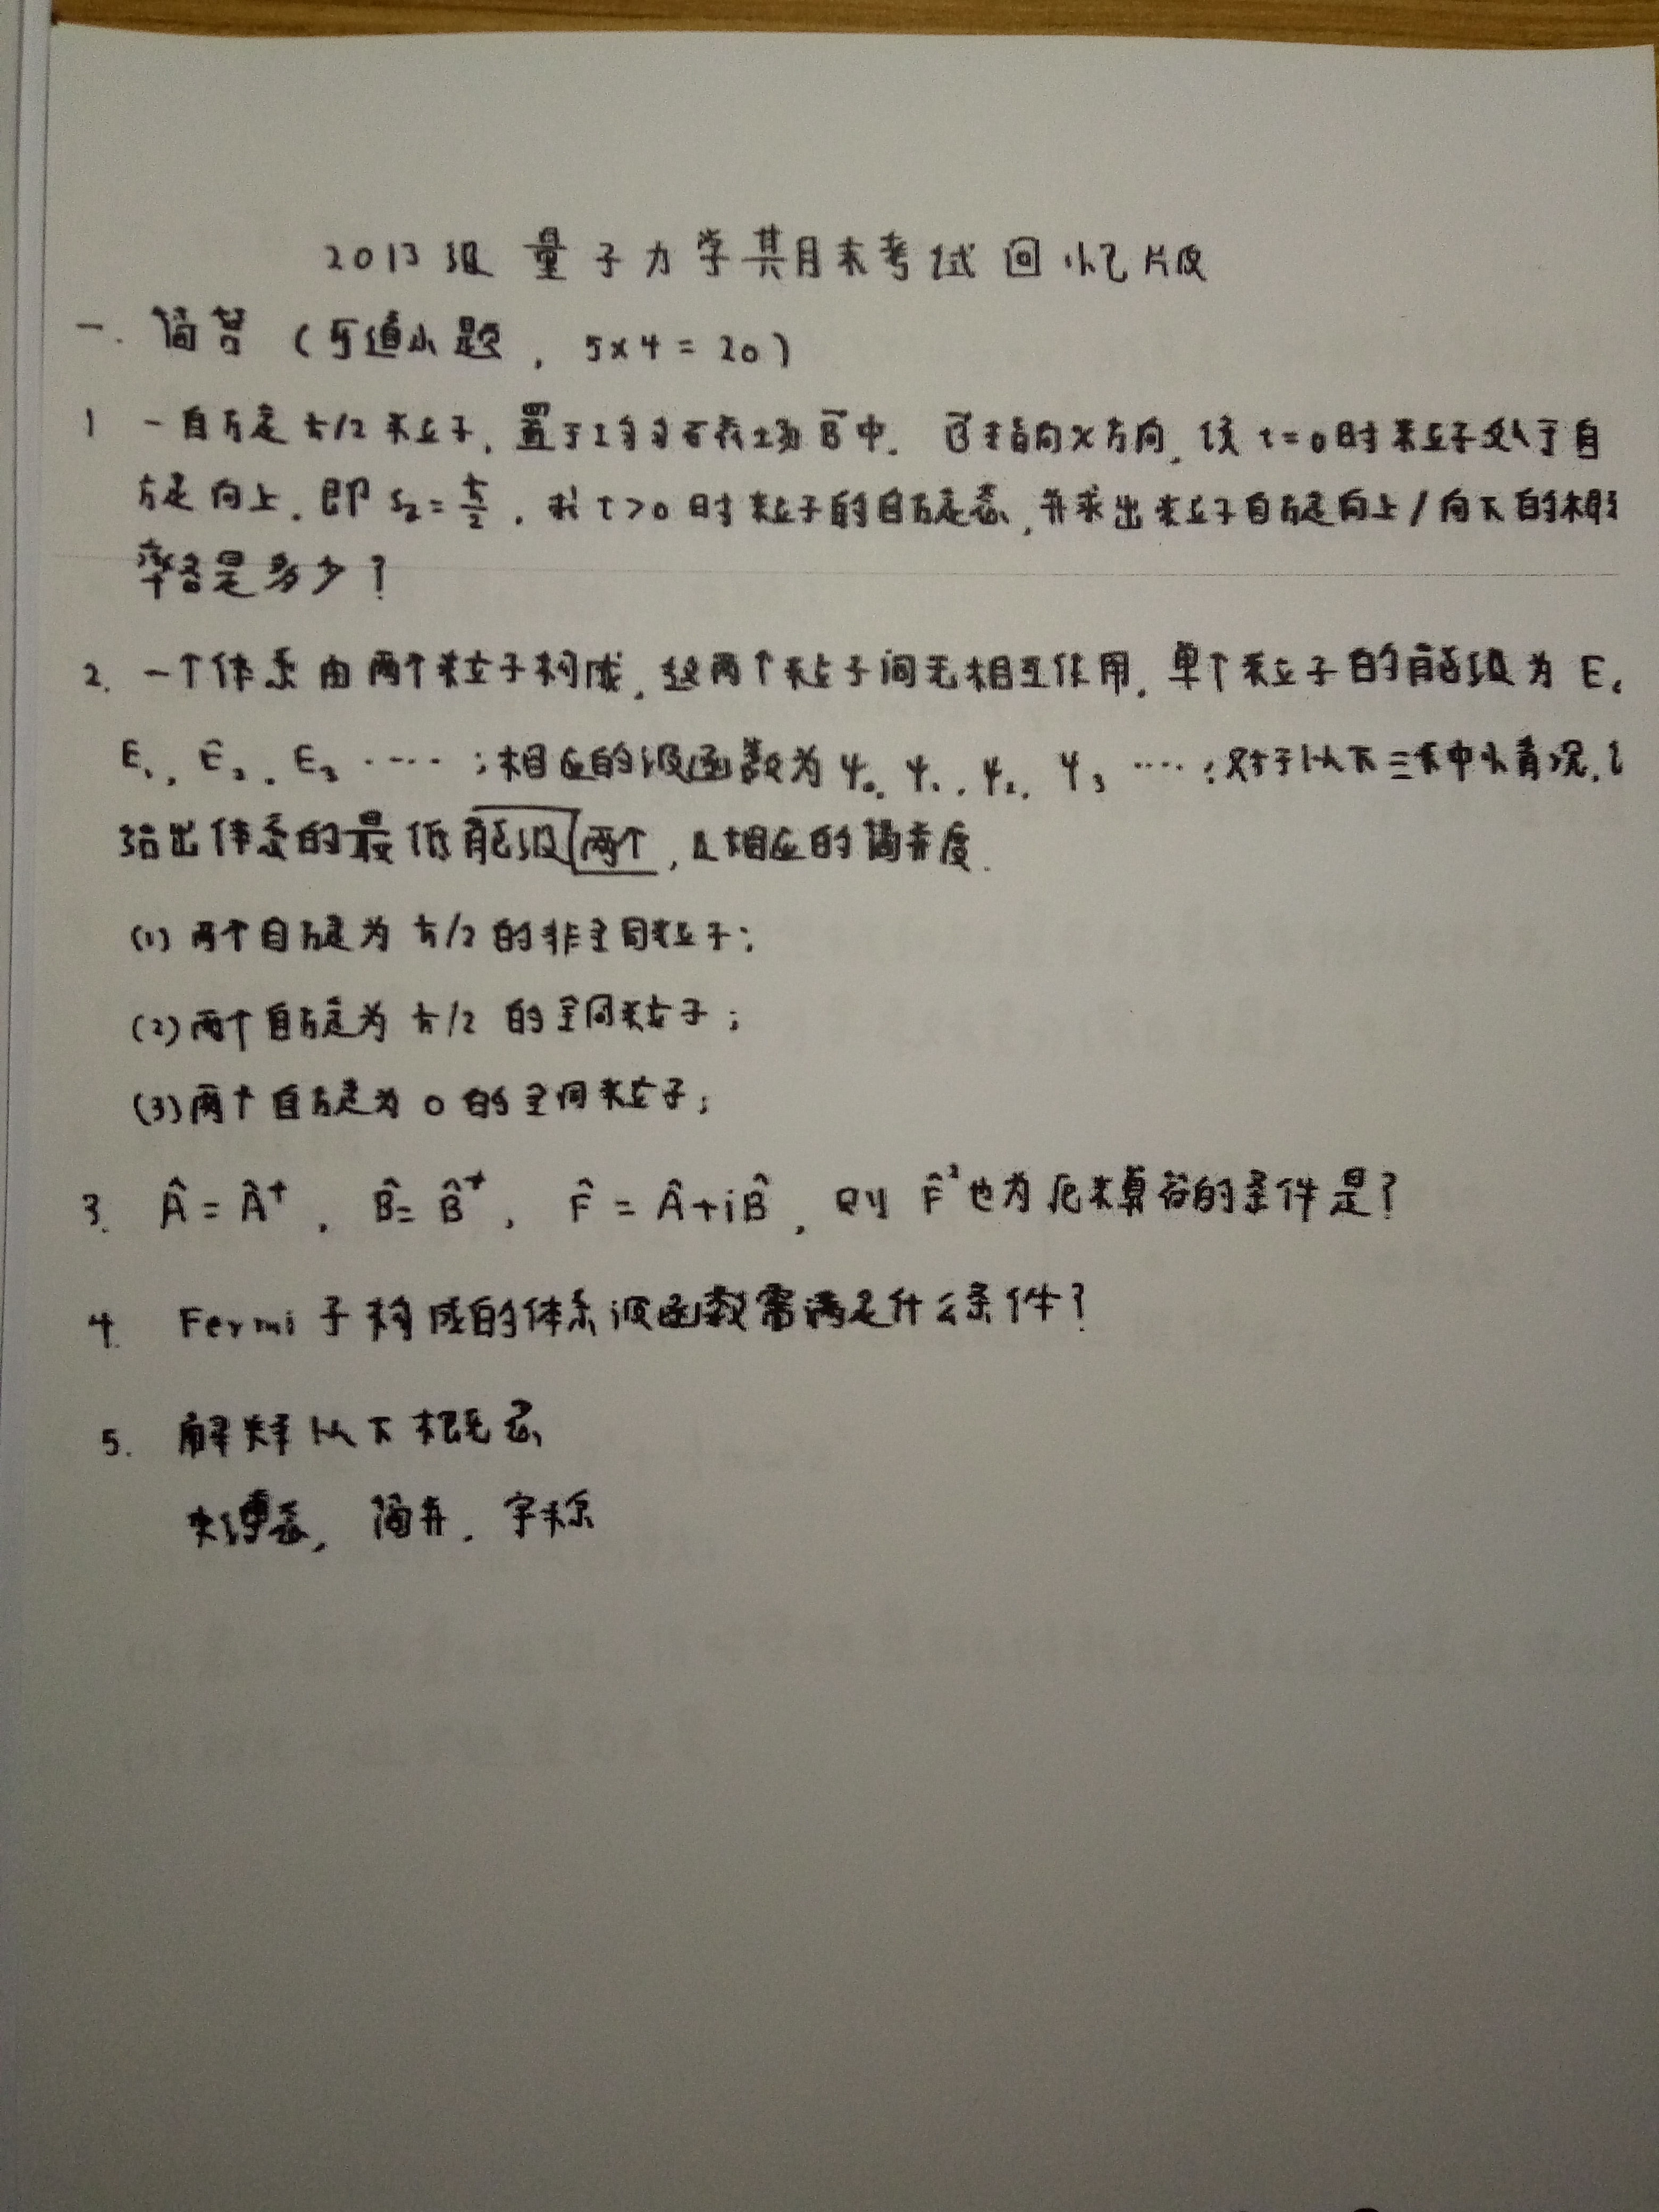 2013级量子力学期末考试回忆版
一. 简答 (5道小题, 5×4=20)
1 一自旋ħ/2粒子, 置于均匀磁场B⃗中. B⃗指向x方向, 设t=0时粒子处于自
旋向上. 即 Sz=ħ/2, 求t>0时粒子的自旋态, 并求出粒子自旋向上/向下的概
率各是多少?
2. 一个体系由两个粒子构成, 这两个粒子间无相互作用, 单个粒子的能级为 E
E₁, E₂, E₃ ····; 相应的波函数为 ψ₀, ψ₁, ψ₂, ψ₃ ····; 对于以下三种情况,
给出体系的最低能级两个, 及相应的简并度.
(1) 两个自旋为 ħ/2 的非全同粒子;
(2) 两个自旋为 ħ/2 的全同粒子;
(3) 两个自旋为 0 的全同粒子;
3. Â = Â⁺, B̂ = B̂⁺, F̂ = Â+iB̂, 则 F̂²也为厄米算符的条件是?
4. Fermi子构成的体系波函数需满足什么条件?
5. 解释以下概念
束缚态, 简并, 宇称